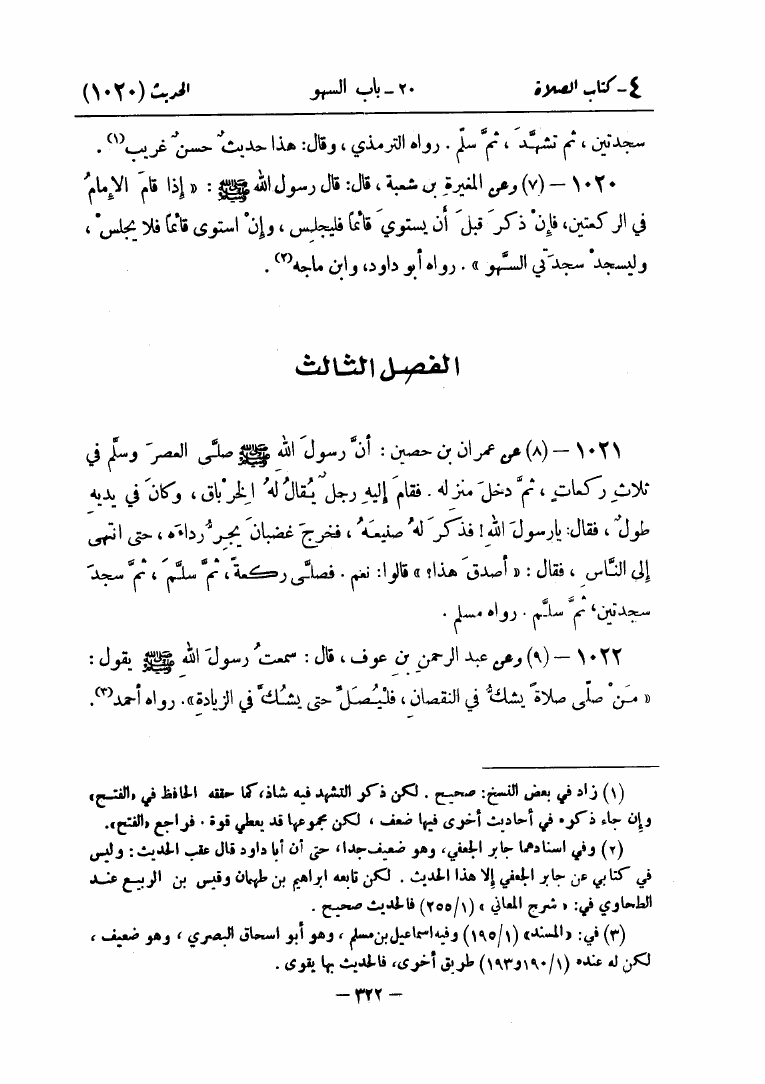 ٤ - كتاب الصلاة ٢٠ - باب السهو الحديث (١٠٢٠)
سجدتين ، ثم تشهَّدَ ، ثمَّ سلّم . رواه الترمذي ، وقال: هذا حديثٌ حسنٌ غريب(١) .
١٠٢٠ - (٧) وعن المغيرةِ بن شعبة ، قال: قال رسول الله ﷺ : « إذا قامَ الإمامُ
في الركعتين، فإنْ ذكرَ قبلَ أن يستويَ قائماً فليجلِس ، وإنْ استوى قائماً فلا يجلسْ ،
وليسجدْ سجدَتي السَّهو » . رواه أبو داود، وابن ماجه(٢) .
الفصل الثالث
١٠٢١ - (٨) عن عمران بن حصين : أنَّ رسولَ اللهِ ﷺ صلَّى العصرَ وسلَّم في
ثلاثِ ركعاتٍ ، ثمَّ دخلَ منزله . فقامَ إليهِ رجلٌ يُقالُ لهُ الخِرْباق ، وكانَ في يديهِ
طولٌ ، فقال: يارسولَ اللهِ! فذكرَ لهُ صنيعَهُ ، فخرجَ غضبانَ يجرُّ رداءَه ، حتى انتهى
إلى النَّاسِ ، فقال : « أصدقَ هذا؟ » قالوا: نعم . فصلَّى ركعةً ، ثمَّ سلَّمَ ، ثمَّ سجدَ
سجدتين، ثمَّ سلَّم . رواه مسلم .
١٠٢٢ - (٩) وعن عبد الرحمنِ بنِ عوف ، قال : سمعتُ رسولَ اللهِ ﷺ يقول :
« مَنْ صلّى صلاةً يشكُّ في النقصانِ ، فلْيُصَلِّ حتى يشُكَّ في الزيادةِ». رواه أحمد(٣).
(١) زاد في بعض النسخ: صحيح . لكن ذكر التشهد فيه شاذ، كما حققه الحافظ في «الفتح»
وإن جاء ذكره في أحاديث أخرى فيها ضعف ، لكن مجموعها قد يعطي قوة . فراجع «الفتح».
(٢) وفي اسنادهما جابر الجعفي، وهو ضعيف جدا، حتى أن أبا داود قال عقب الحديث : وليس
في كتابي عن جابر الجعفي إلا هذا الحديث . لكن تابعه ابراهيم بن طهمان وقيس بن الربيع عند
الطحاوي في: « شرح المعاني » (١/٢٥٥) فالحديث صحيح .
(٣) في: «المسند» (١/١٩٥) وفيه اسماعيل بن مسلم ، وهو أبو اسحاق البصري ، وهو ضعيف ،
لكن له عنده (١/١٩٠ و١٩٣) طريق أخرى، فالحديث بها يقوى .
- ٣٢٢ -